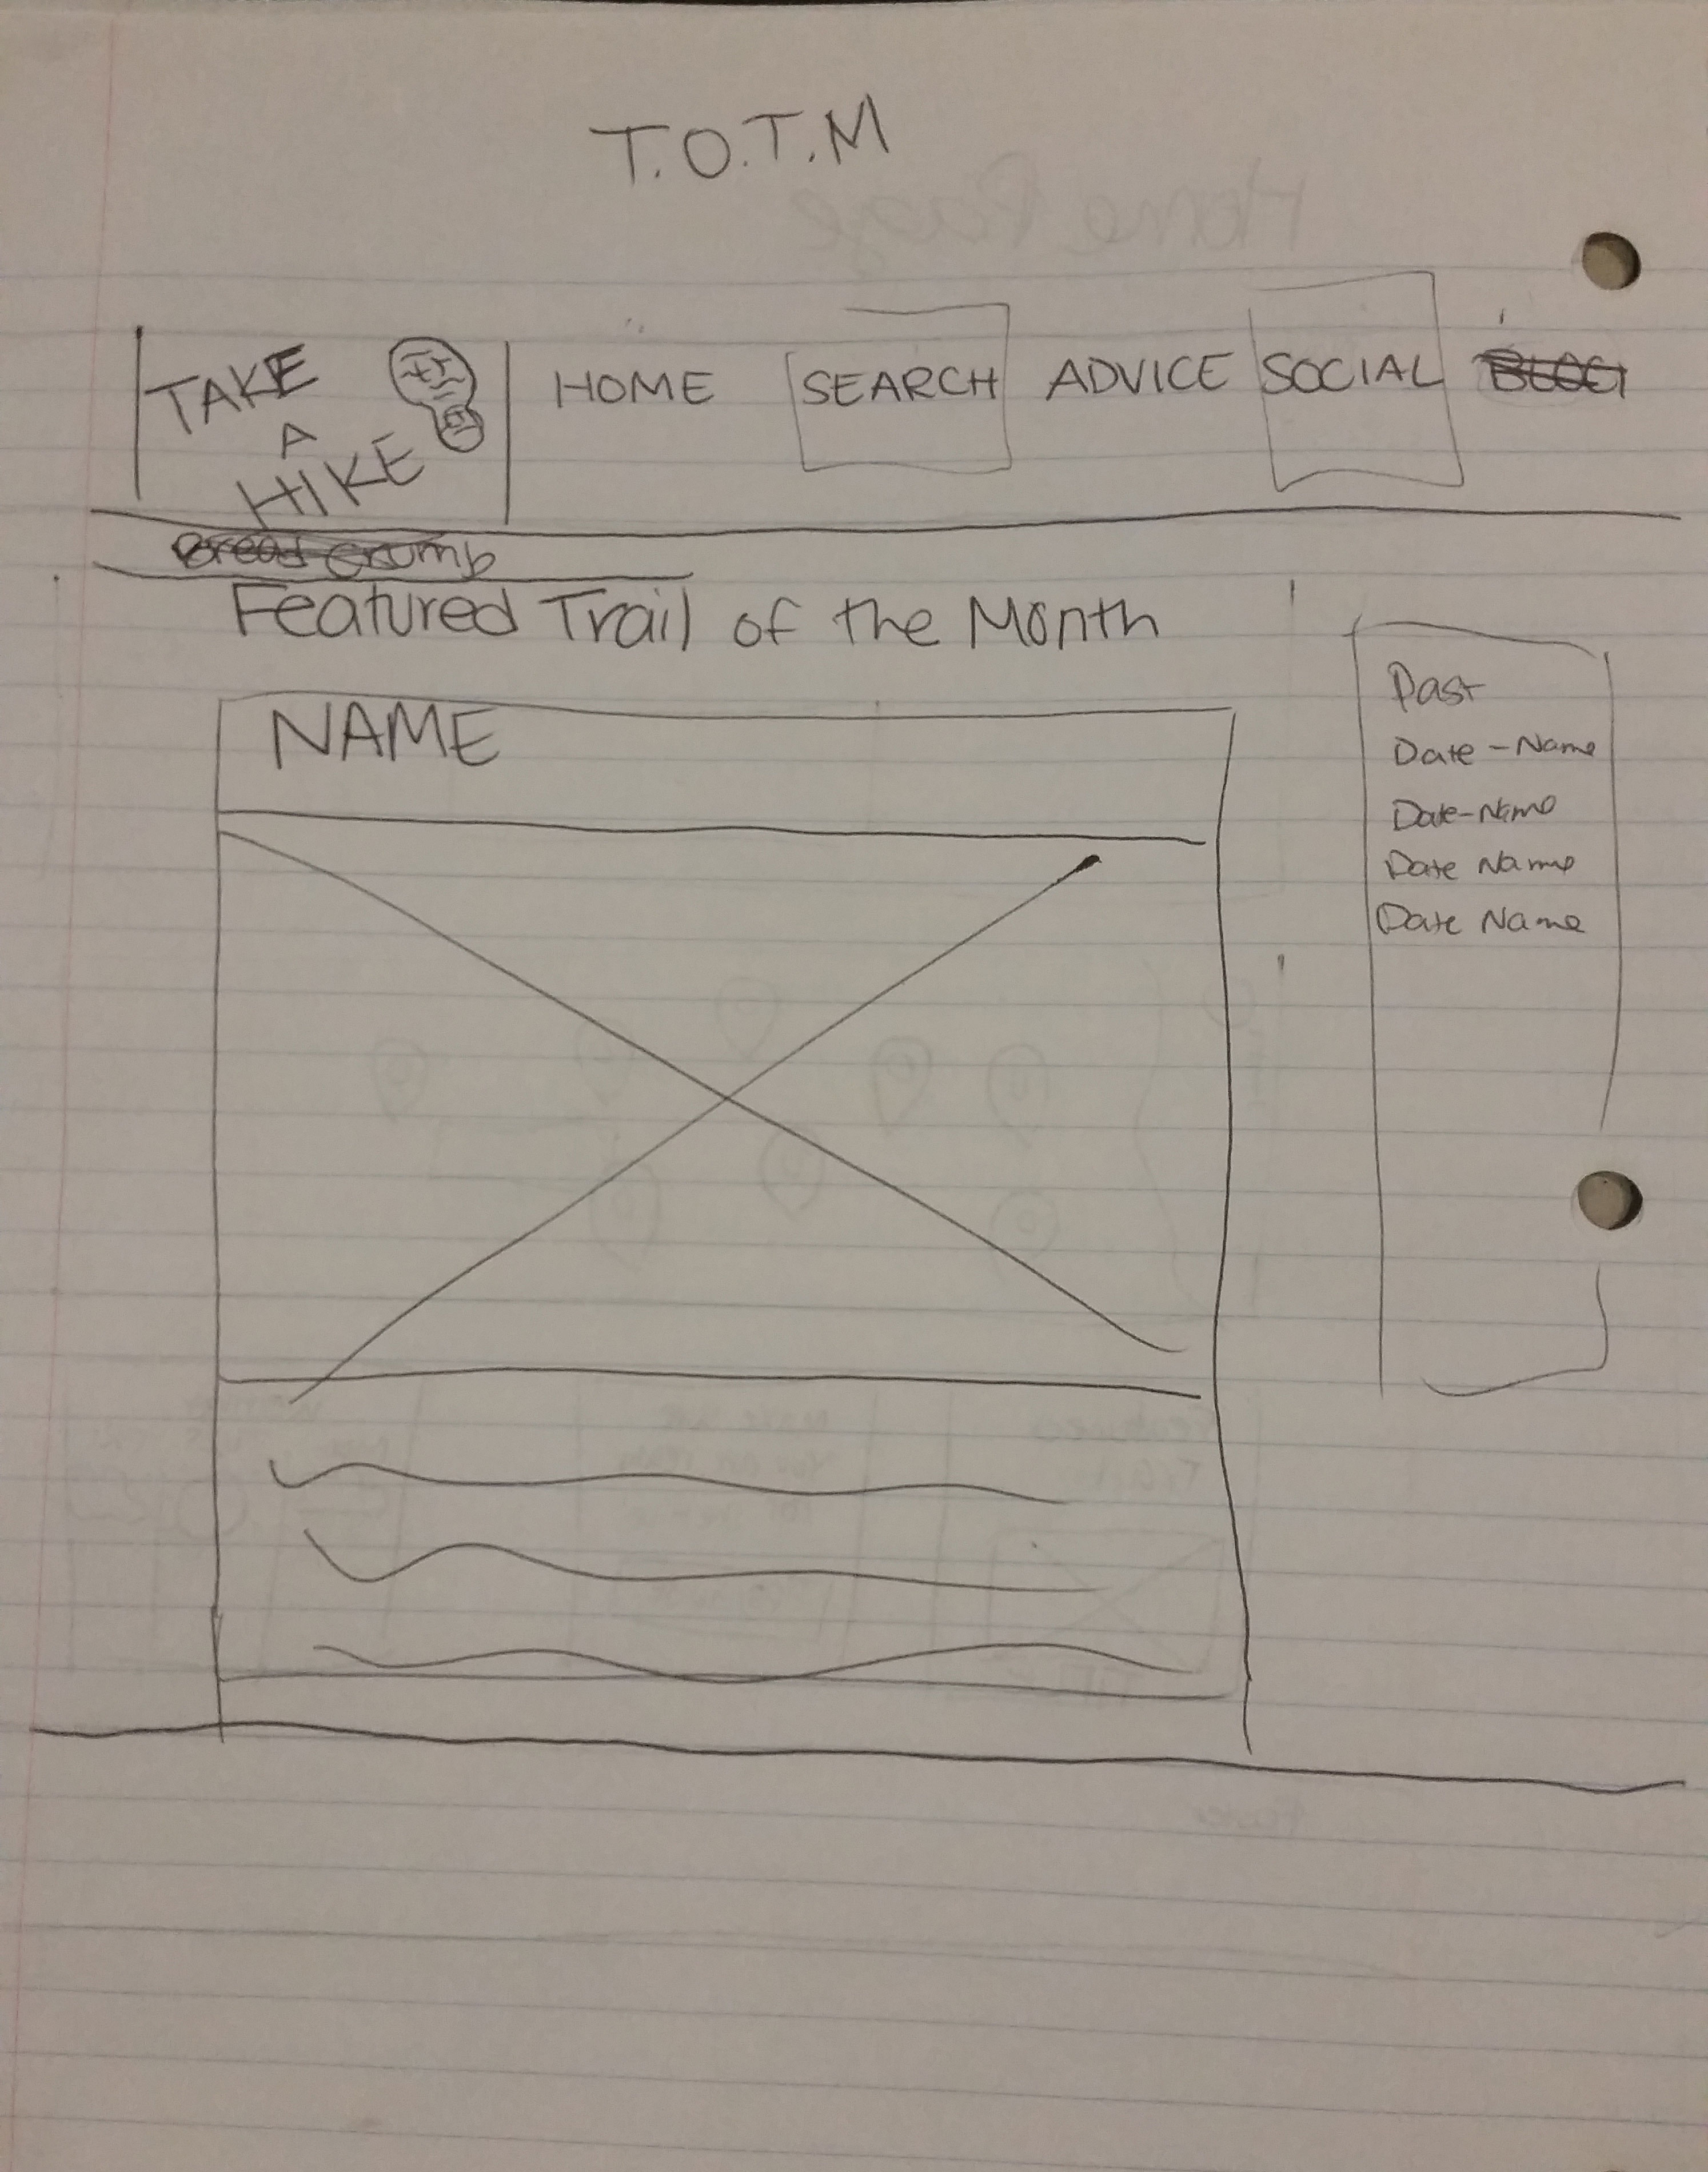 T.O.T.M
TAKE
A
HIKE
HOME SEARCH ADVICE SOCIAL BLOG
Bread Crumb
Featured Trail of the Month
NAME
Past
Date - Name
Date - Name
Date Name
Date Name
Home Page